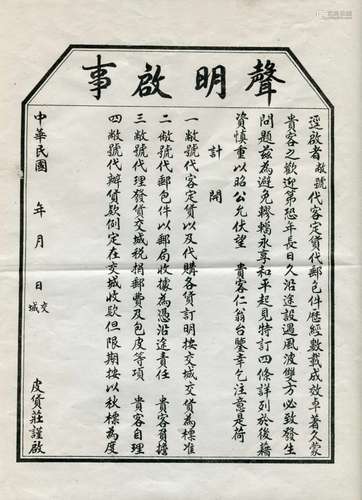 聲明啟事
逕啟者敝號代客定貨代郵包件歷經數載成效卓著久蒙
貴客之歡迎第恐年長日久沿途設遇風波雙方必致發生
問題茲為避免轇轕永享和平起見特訂四條詳列於後藉
資慎重以昭公允伏望 貴客仁翁台鑒幸乞注意是荷
計開
一 敝號代客定貨以及代購各貨訂明按交城交貨為標准
二 敝號代郵包件以郵局收據為憑沿途責任 貴客負擔
三 敝號代理發貨交城稅捐郵費及包皮等項 貴客自理
四 敝號代辦貨欵例定在交城收欵但限期按以秋標為度
中華民國 年 月 日 交城 皮貨莊謹啟